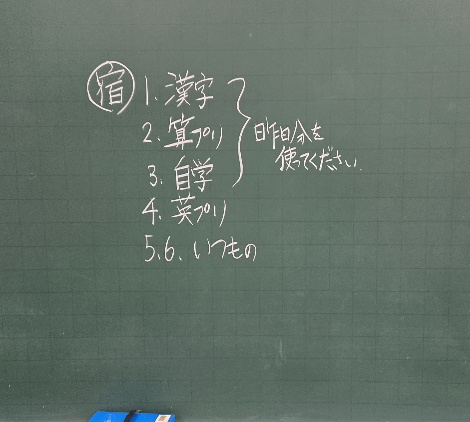 宿 1. 漢字
2. 算プリ
3. 自学
昨日分を
使ってください.
4. 英プリ
5.6. いつもの